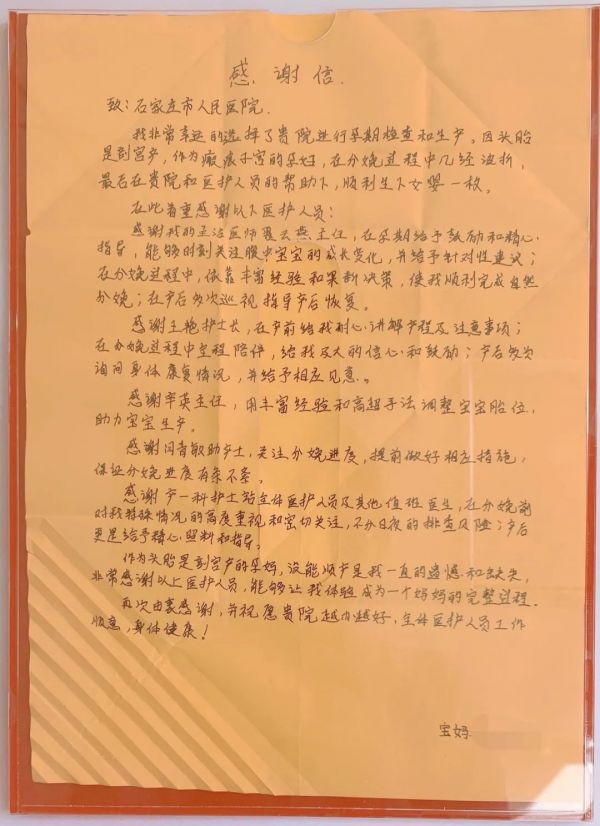 感谢信.
致：石家庄市人民医院.
我非常幸运的选择了贵院进行孕期检查和生产。因头胎
是剖宫产，作为瘢痕子宫的孕妈，在分娩过程中几经波折，
最后在贵院和医护人员的帮助下，顺利生下女婴一枚。
在此着重感谢以下医护人员：
感谢我的主治医师翟云燕主任，在孕期给予鼓励和精心
指导，能够时刻关注腹中宝宝的成长变化，并给予针对性建议；
在分娩过程中，依靠丰富经验和果断决策，使我顺利完成自然
分娩；在产后多次巡视指导产后恢复。
感谢王艳护士长，在产前给我耐心讲解产程及注意事项；
在分娩过程中全程陪伴，给我莫大的信心和鼓励；产后多次
询问身体康复情况，并给予相应见意。
感谢 英主任，用丰富经验和高超手法调整宝宝胎位，
助力宝宝生产。
感谢闫青敏助产士，关注分娩进度，提前做好相应措施，
保证分娩进度有条不紊。
感谢产一科护士站全体医护人员及其他值班医生，在分娩前
对我特殊情况的高度重视和密切关注，不分日夜的排查风险；产后
更是给予精心照料和指导。
作为头胎是剖宫产的孕妈，没能顺产是我一直的遗憾和缺失，
非常感谢以上医护人员，能够让我体验成为一个妈妈的完整过程.
再次由衷感谢，并祝愿贵院越办越好，全体医护人员工作
顺意，身体健康！
宝妈